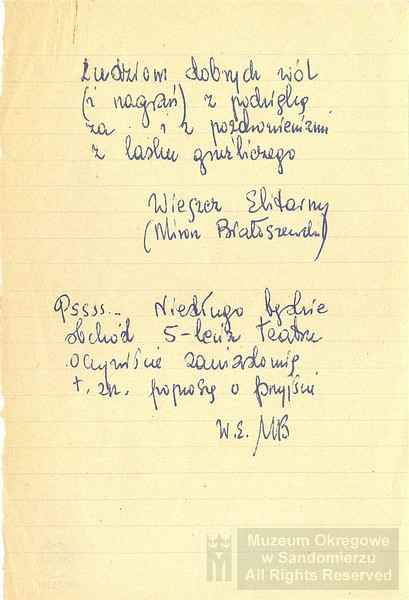 Ludziom dobrych wól
(i nagrań) z podzięką
za . i z pozdrowieniami
z lasku gruźliczego
Wieszcz Elitarny
(Miron Białoszewski)
Pssss... Niedługo będzie
obchód 5-lecia teatru
oczywiście zawiadomię
t. zn. poproszę o przyjście
W.E. MB
Muzeum Okręgowe
w Sandomierzu
All Rights Reserved